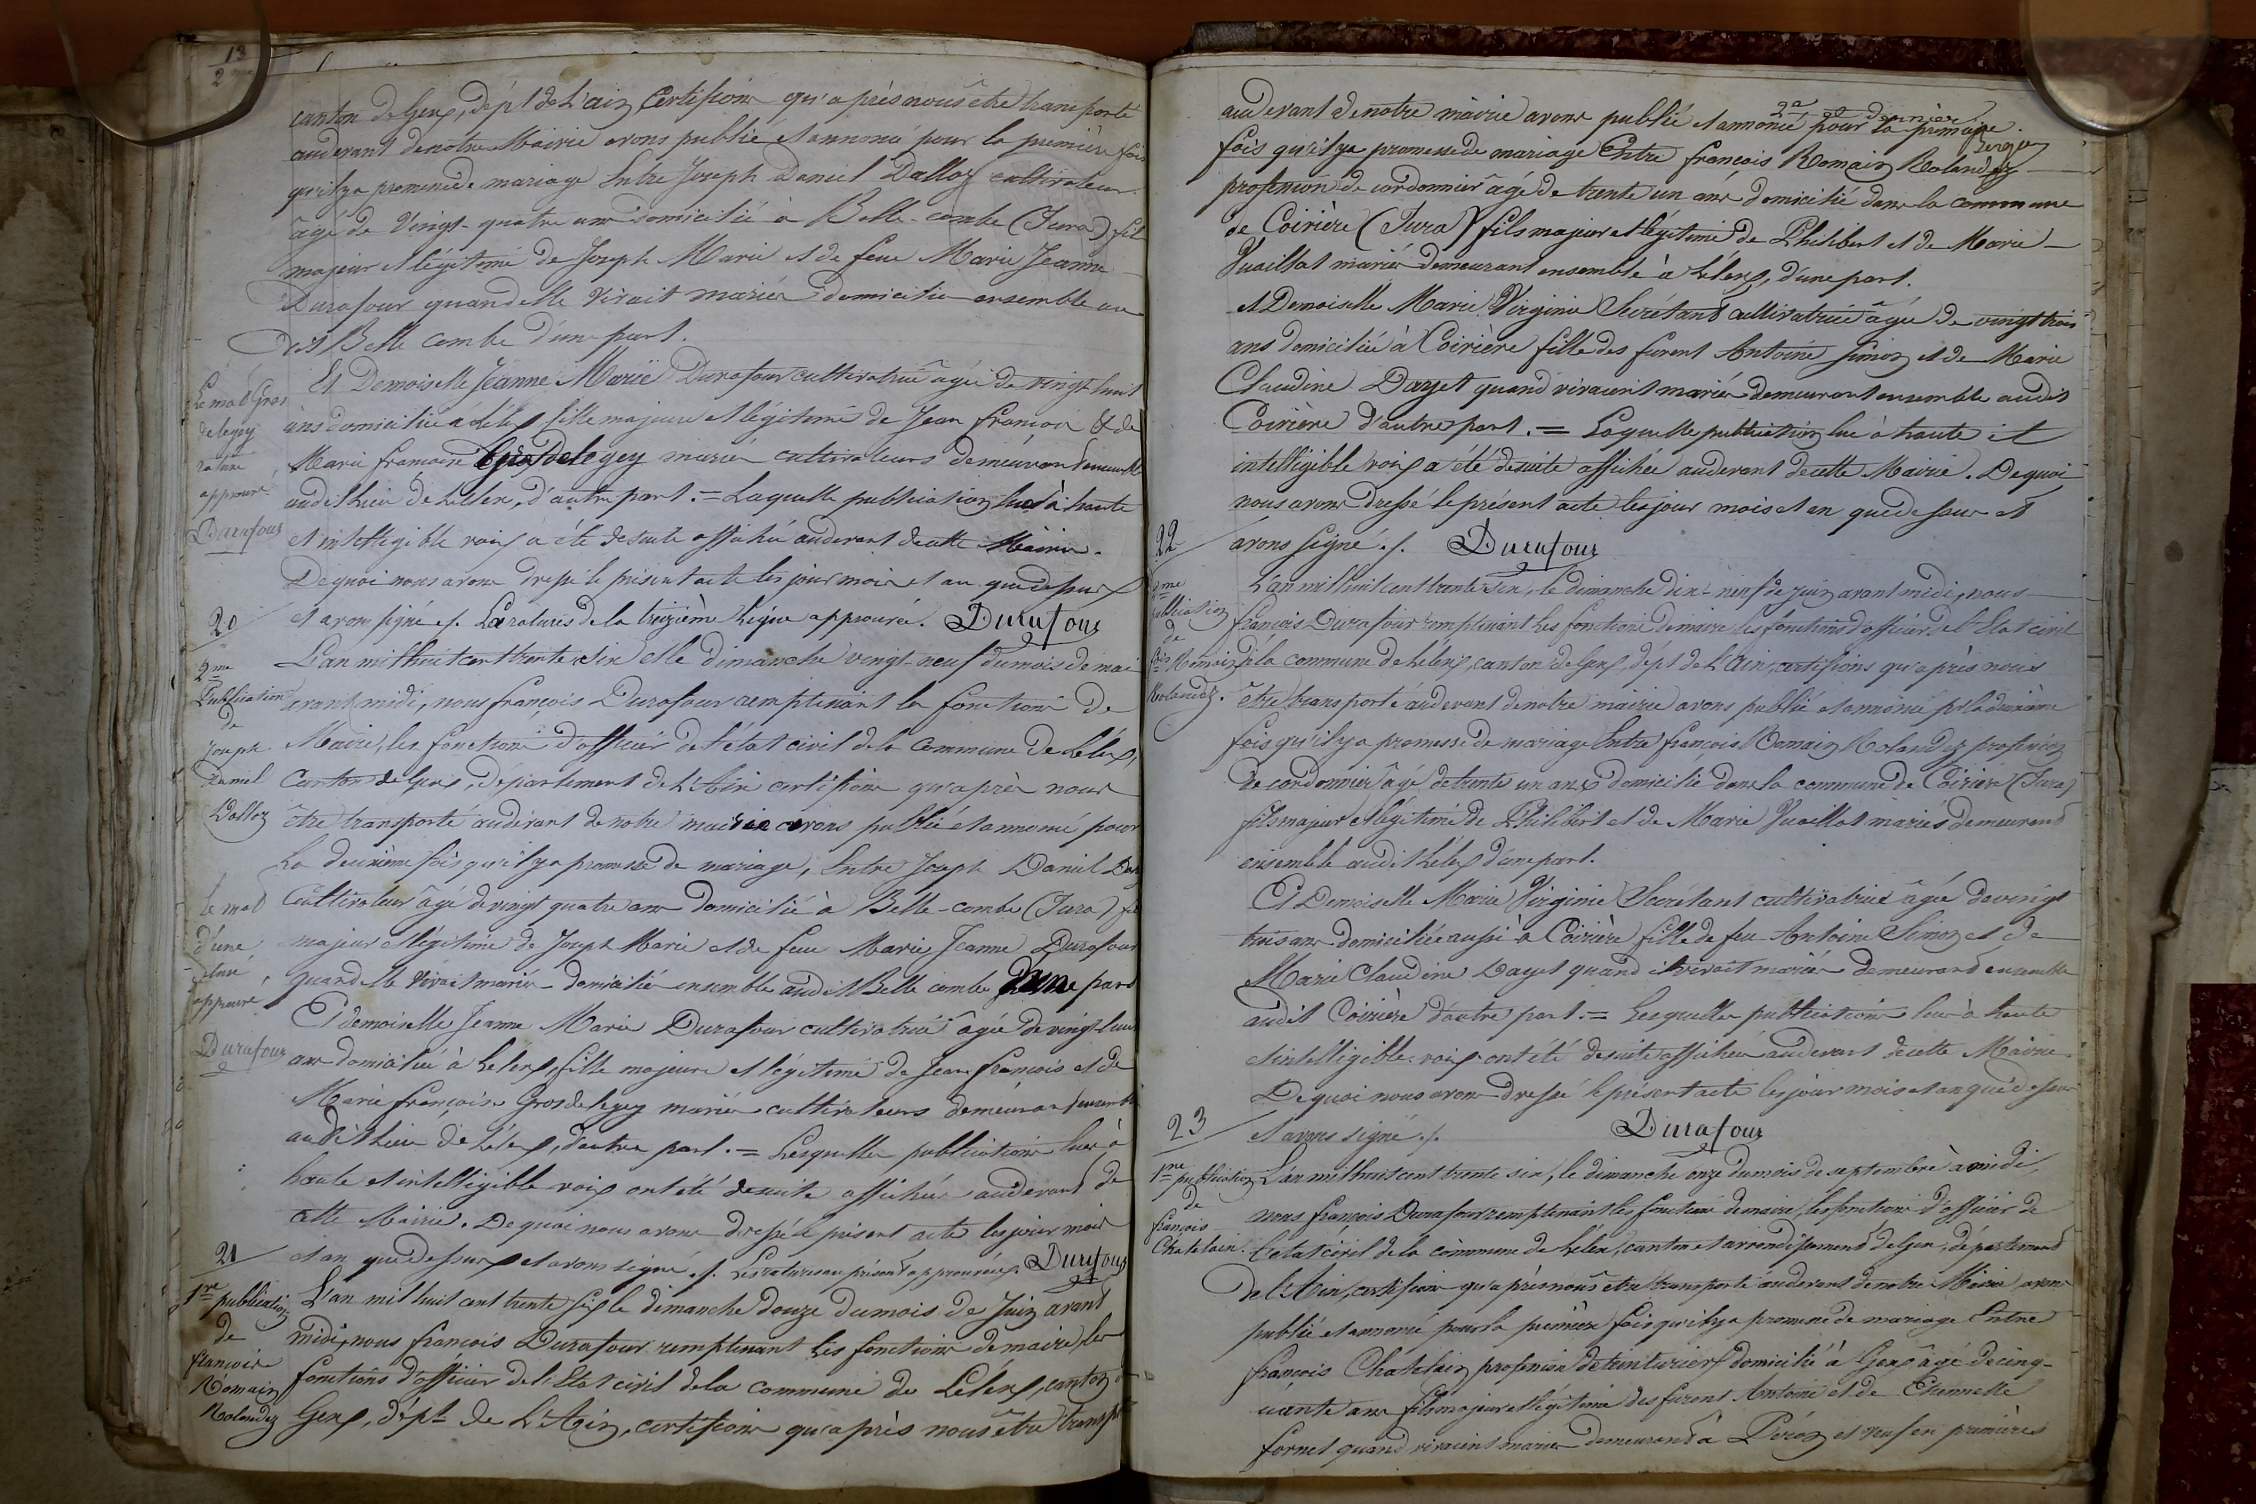 13
2
canton de Gex, dép.t de L'ain, Certifions qu'après nous être transporté
audevant de notre Mairie avons publié et annoncé pour la première fois
qu'il y a promesse de mariage Entre Joseph Daniel Dalloz cultivateur
âgé de Vingt-quatre ans domicilié à Belle-combe (Jura) fils
majeur et légitime de Joseph Marie et de feue Marie Jeanne
Durafour quand elle vivait mariés domicilié ensemble au
dit Belle combe d'une part.
Et Demoiselle Jeanne Marie Durafour cultivatrice âgée de vingt huit
ans domiciliée à Lélex fille majeure et légitime de Jean françois & de
Marie francoise Grosdelegey mariés cultivateurs demeurant ensemble
audit Lieu de Lelex, d'autre part. = Laquelle publication lue à haute
et intelligible voix a été de suite affichée audevant de cette Mairie.
De quoi nous avons dressé le présent acte les jour mois et an que dessus
et avons signé ./. La rature de la treizième Ligne approuvée. Durafour
Le mot Gros
delegey
rature
approuvé
Durafour
20
2me
Publication
de
Joseph
Daniel
Dalloz
L'an mil huit cent trente six et le dimanche vingt-neuf du mois de mai
avant midi, nous françois Durafour remplissant la fonctions de
Maire, les fonctions d'officier de l'état civil de la Commune de Lélex,
Canton de Gex, département de L'Ain certifions qu'après nous
être transporté audevant de notre mairie avons publié et annoncé pour
La deuxième fois qu'il y a promesse de mariage, Entre Joseph Daniel
Cultivateur âgé de vingt quatre ans domicilié à Belle-combe (Jura) fils
majeur et légitime de Joseph Marie et de feue Marie Jeanne Durafour
quand elle vivait mariés domicilié ensemble audit Belle combe d'une part
Et demoiselle Jeanne Marie Durafour cultivatrice âgée de vingt huit
ans domiciliée à Lelex, fille majeure et légitime de Jean françois et de
Marie françoise Grosdelegey mariés cultivateurs demeurant ensemble
audit Lieu de Lélex, d'autre part. = Lesquelles publications lues à
haute et intelligible voix ont été de suite affichées audevant de
cette Mairie. De quoi nous avons dressé le présent acte les jour mois
et an que dessus et avons signé ./. Les ratures au présent approuvées. Durafour
le mot
d'une
approuvé
Durafour
21
1re publication
de
francois
Romain
Rolandez
L'an mil huit cent trente six le dimanche douze du mois de Juin avant
midi, nous francois Durafour remplissant les fonctions de maire les
fonctions d'officier de l'Etat civil de la commune de Lélex, canton de
Gex, dép.t de L'Ain, certifions qu'après nous être transporté
audevant de notre mairie avons publié et annoncé pour la première
fois qu'il y a promesse de mariage Entre françois Romain Rolandez
profession de cordonnier âgé de trente un ans domicilié dans la commune
de Coirière (Jura) fils majeur et légitime de Philibert et de Marie
Vuaillat mariés demeurant ensemble à Lélex, d'une part.
et Demoiselle Marie Virginie Secrétant cultivatrice âgée de vingt trois
ans domiciliée à Coirière fille des furent Antoine Simon et de Marie
Claudine Dayet quand vivaient mariés demeurant ensemble audit
Coirière d'autre part. = Laquelle publication lue à haute et
intelligible voix a été de suite affichée audevant de cette Mairie. De quoi
nous avons dressé le présent acte les jour mois et an que dessus et
avons signé ./. Durafour
22
2me
publication
de
fois Romain
Rolandez.
L'an mil huit cent trente six, le dimanche dix-neuf de juin avant midi, nous
françois Durafour remplissant les fonctions de maire les fonctions d'officier de l'Etat civil
de la commune de Lelex, canton de Gex, dép.t de L'Ain, certifions qu'après nous
être transporté audevant de notre mairie avons publié et annoncé pr la deuxième
fois qu'il y a promesse de mariage Entre françois Romain Rolandez profession
de cordonnier âgé de trente un ans domicilié dans la commune de Coirière (Jura)
fils majeur et légitime de Philibert et de Marie Vuaillat mariés demeurant
ensemble audit Lélex d'une part.
Et Demoiselle Marie Virginie Secrétant cultivatrice âgée de vingt
trois ans domiciliée aussi à Coirière fille de feu Antoine Simon et de
Marie Claudine Dayet quand il vivait mariés demeurant ensemble
audit Coirière d'autre part. = Lesquelles publications lues à haute
et intelligible voix ont été de suite affichées audevant de cette Mairie.
De quoi nous avons dressé le présent acte les jour mois et an que dessus
et avons signé ./. Durafour
23
1re publication
de
françois
Chatelain.
L'an mil huit cent trente six, le dimanche onze du mois de septembre à midi,
nous françois Durafour remplissant les fonctions de maire, les fonctions d'officier de
l'etat civil de la commune de Lélex, canton et arrondissement de Gex, département
de l'Ain, certifions qu'après nous être transporté audevant de notre Mairie avons
publié et annoncé pour la première fois qu'il y a promesse de mariage Entre
françois Chatelain profession de teinturier domicilié à Gex âgé de cinq-
uante ans fils majeur et légitime des furent Antoine et de Etiennette
fornet quand vivaient mariés demeurant à Péron et veuf en premières